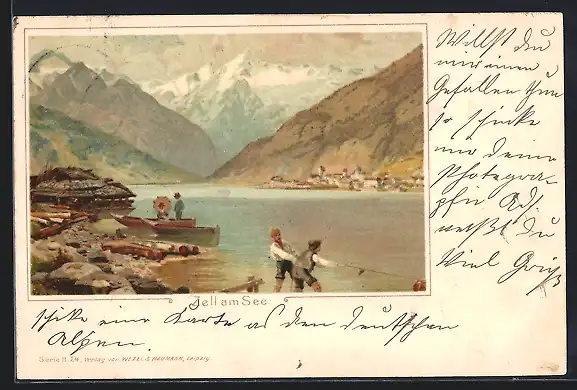 Willst du
mir einen
Gefallen thun
so schicke
mir deine
Photogra-
phie Adr.
weißt du
Viel Grüß
Zell am See
schike eine Karte as den deutschen
Alpen.
Serie II. 24, Verlag von VELTEL & NAUMANN, Leipzig.